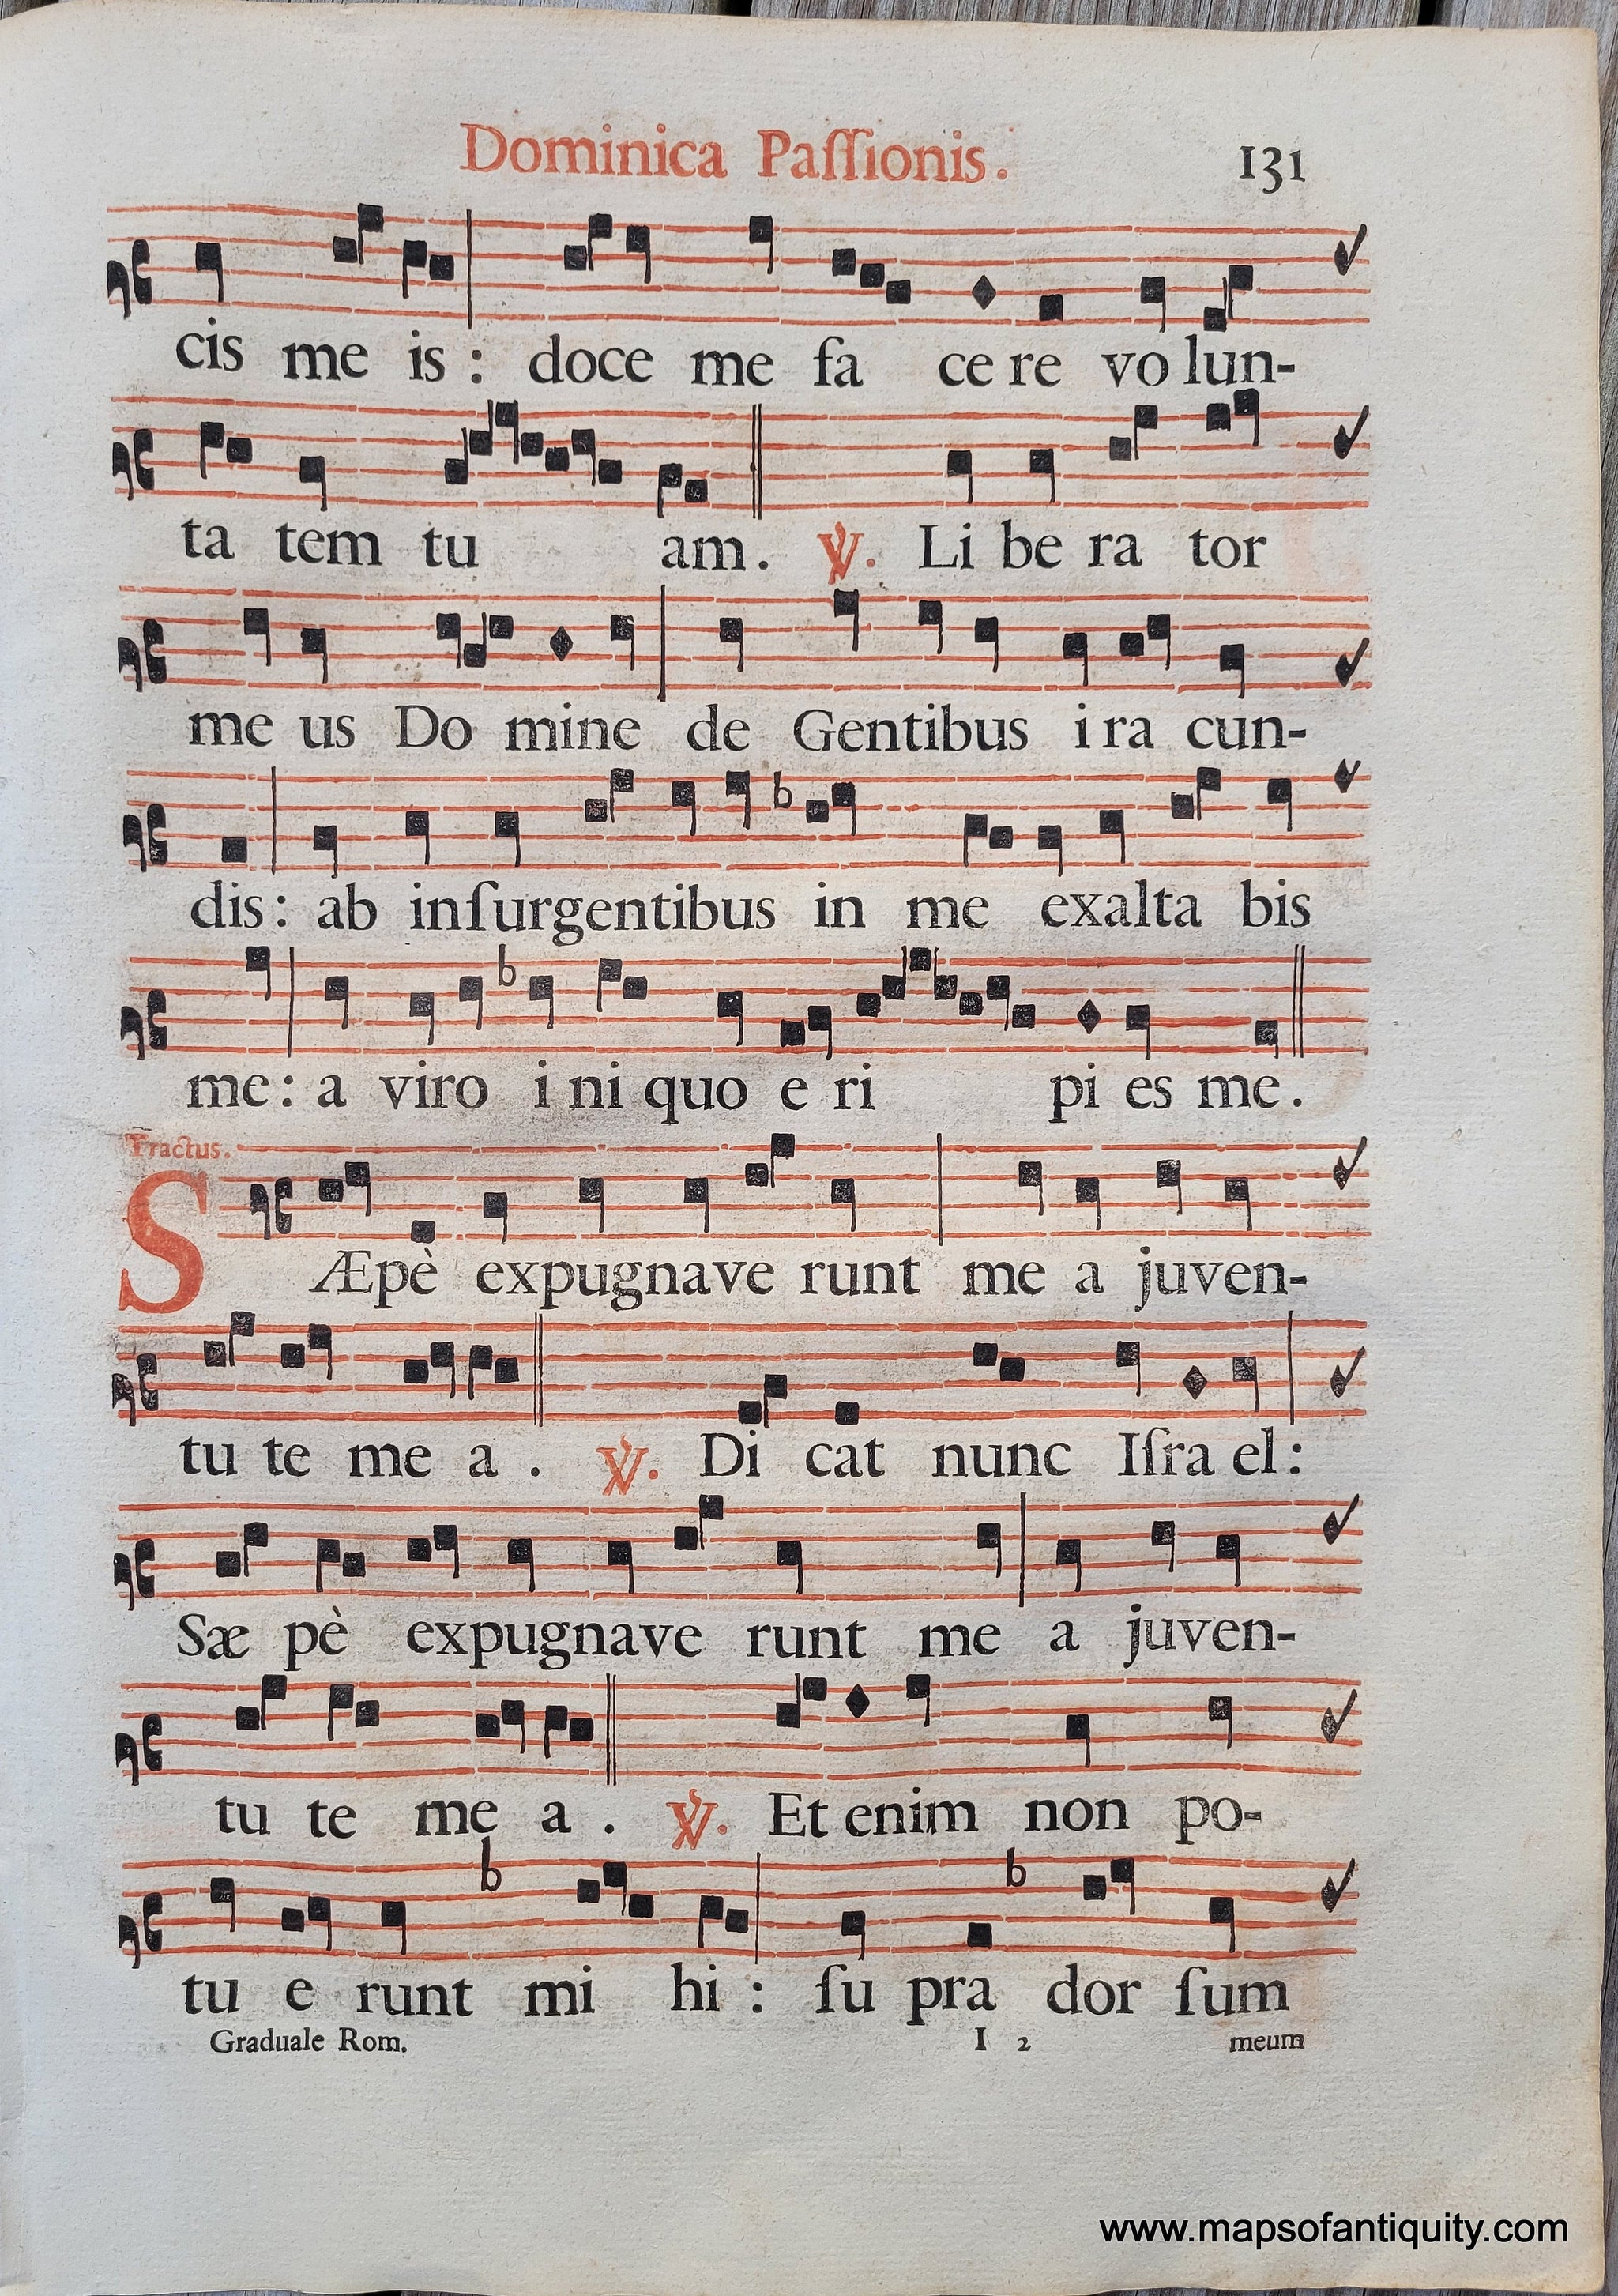 Dominica Paſſionis. 131
cis me is : doce me fa ce re vo lun-
ta tem tu am. ℣. Li be ra tor
me us Do mine de Gentibus i ra cun-
dis : ab inſurgentibus in me exalta bis
me : a viro i ni quo e ri pi es me.
Tractus.
SÆpè expugnave runt me a juven-
tu te me a . ℣. Di cat nunc Iſra el :
Sæ pè expugnave runt me a juven-
tu te me a . ℣. Et enim non po-
tu e runt mi hi : ſu pra dor ſum
Graduale Rom. I 2 meum
www.mapsofantiquity.com